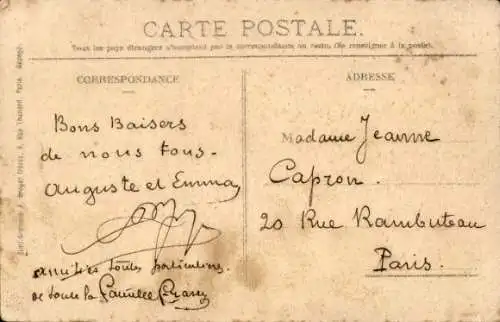 CARTE POSTALE.
Tous les pays étrangers n'acceptent pas la correspondance au recto. (Se renseigner à la poste).
CORRESPONDANCE
Bons Baisers
de nous tous.
Auguste et Emma
amitiés toutes particulières
de toute la Famille
ADRESSE
Madame Jeanne
Capron.
20 Rue Rambuteau
Paris.